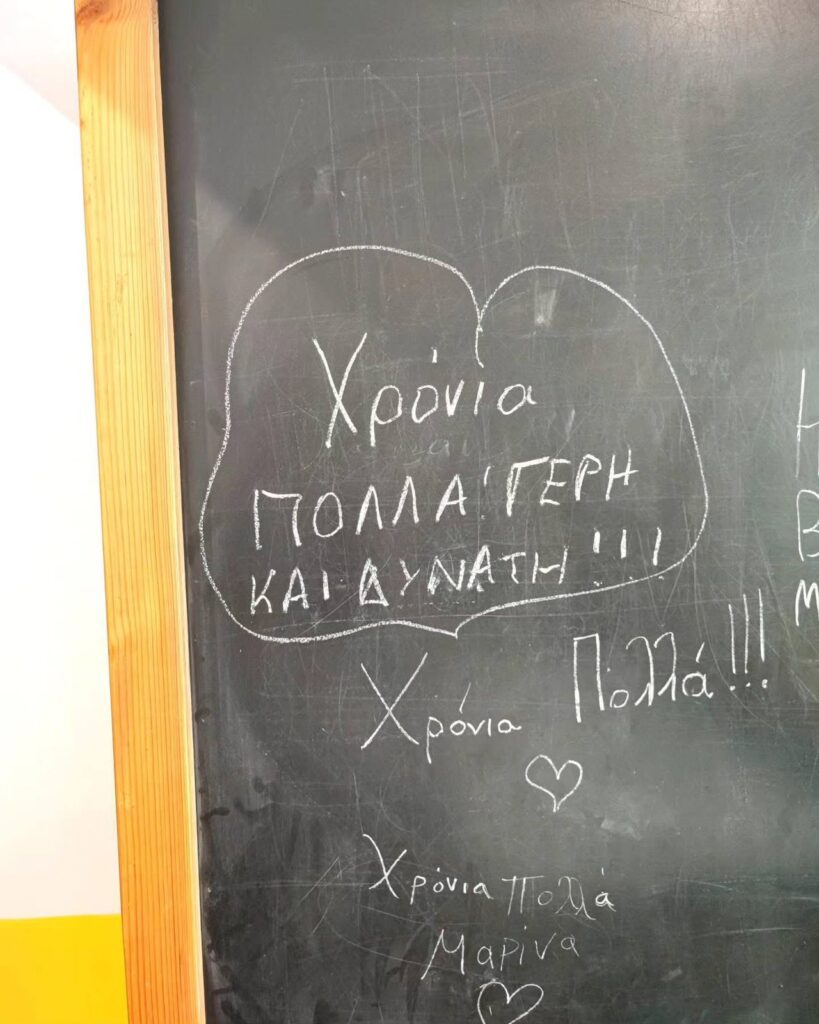 Χρόνια
ΠΟΛΛΑ! ΓΕΡΗ
ΚΑΙ ΔΥΝΑΤΗ!!!
Χρόνια Πολλά!!!
Χρόνια Πολλά
Μαρίνα